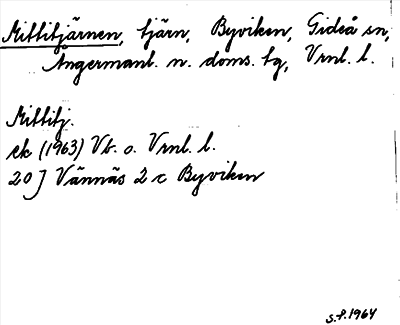 Mittitjärnen, tjärn, Byviken, Gideå sn,
Ångermanl. n. doms. tg, Vrnl. l.
Mittitj.
ek (1963) Vb. o. Vrnl. l.
20 J Vännäs 2 c Byviken
S.F. 1964